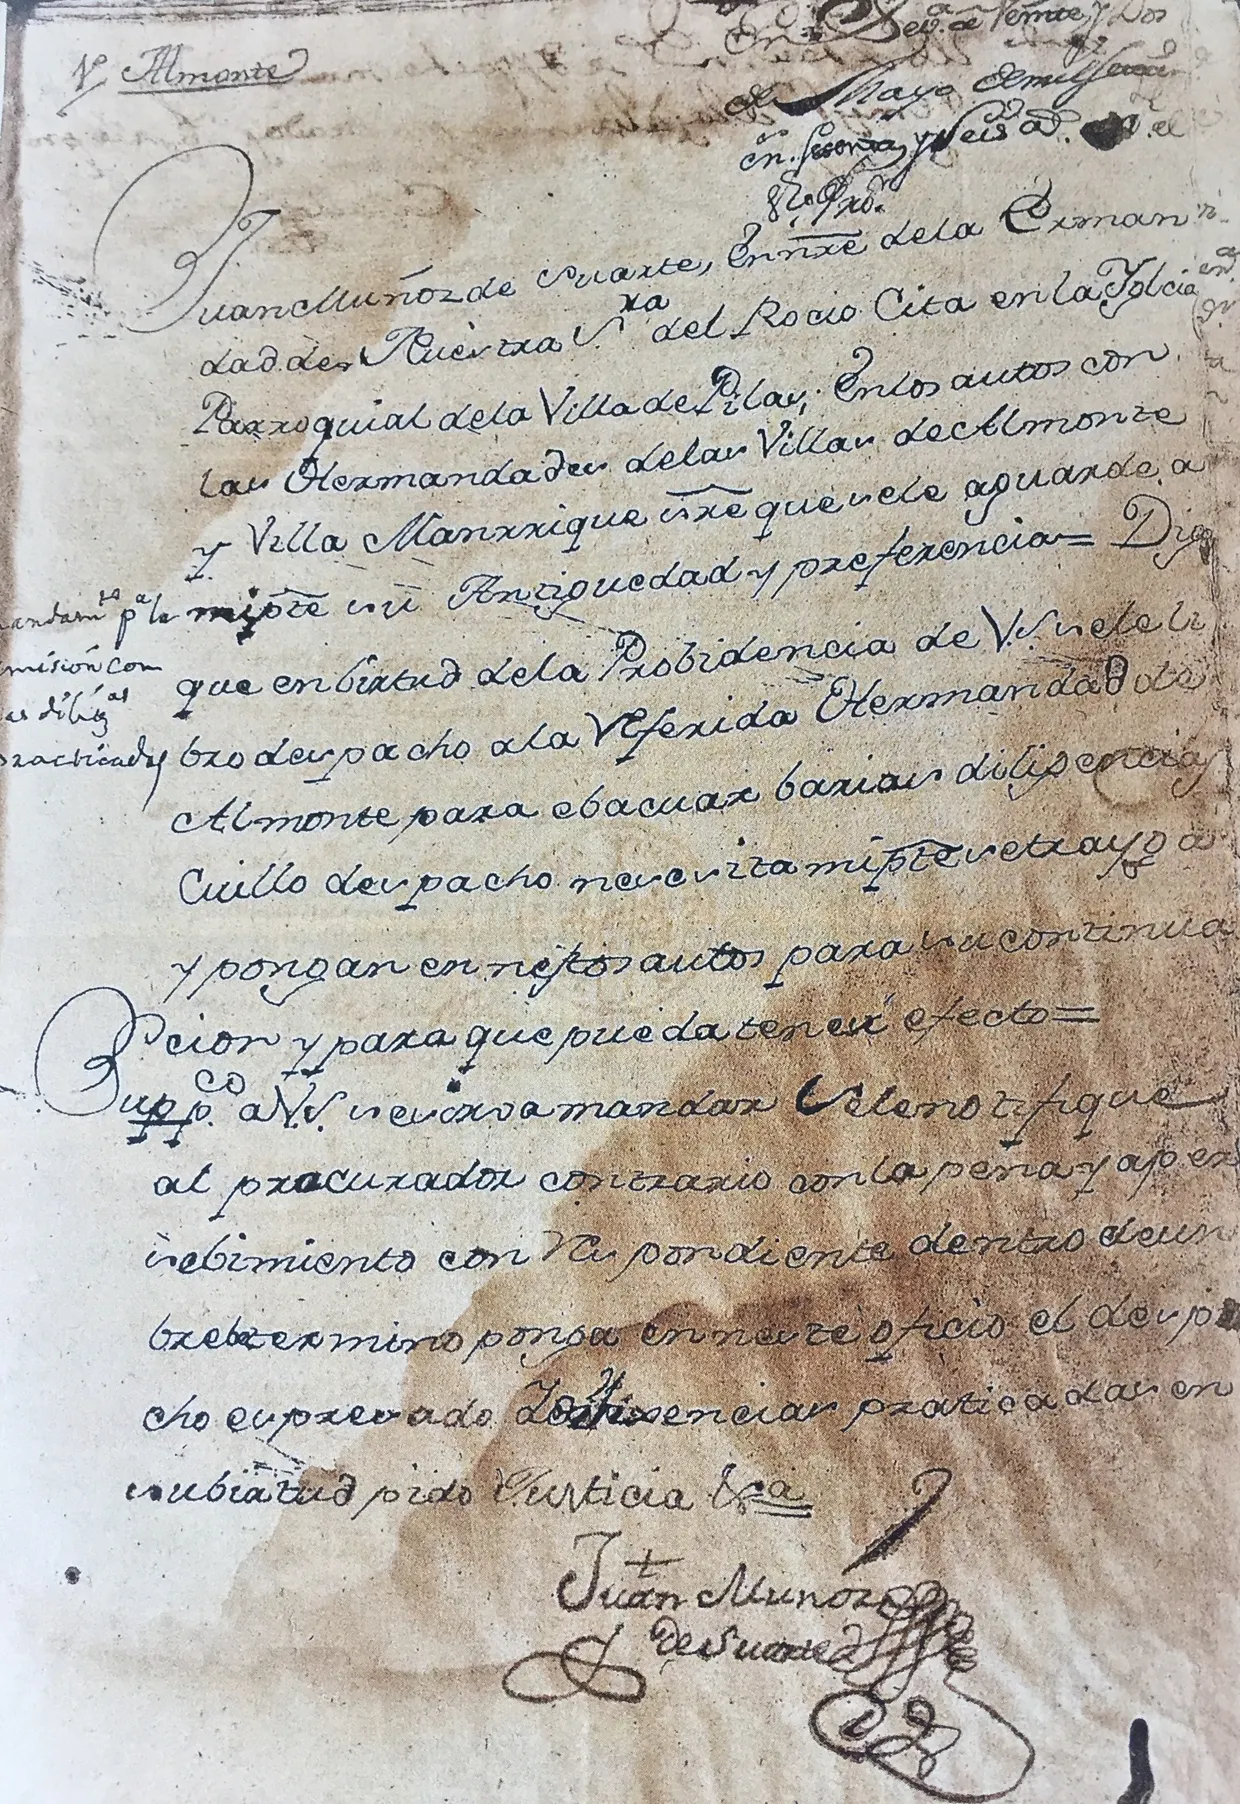 Vª Almonte
En Seva. a Veinte y Dos
de Mayo de mil
y Seis ad. el
Sr. Pror.
Juan Muñoz de Duarte, En nre de la Erman
dad de Nuestra Sra del Rocio Cita en la Iglecia
Parroquial de la Villa de Pilas; En los autos con
las Hermandades de las Villas de Almonte
y Villa Manrrique sre que se le aguarde a
mi pte su Antiguedad y preferencia= Digo
que en birtud de la Probidencia de V.S. se le li
bro despacho a la Referida Hermandad de
Almonte para ebacuar barias diligencias
Cuillo despacho nesesita mi pte se trayga
y pongan en nestos autos para su continua
cion y para que pueda tener efecto=
Suppco. a V.S. se sirva mandar Se le notifique
al procurador contrario con la pena y aper
sebimiento con Respondiente dentro de un
brebe termino ponga en neste oficio el despa
cho espresado diligencias praticadas en
su birtud pido Justicia &a
Juan Muñoz
de Duarte
mandamto pa la
misión con
as diligas
practicadas